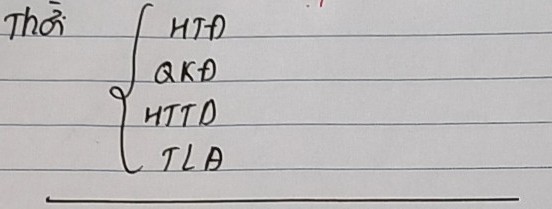 Thời HTĐ
QKĐ
HTTD
TLĐ